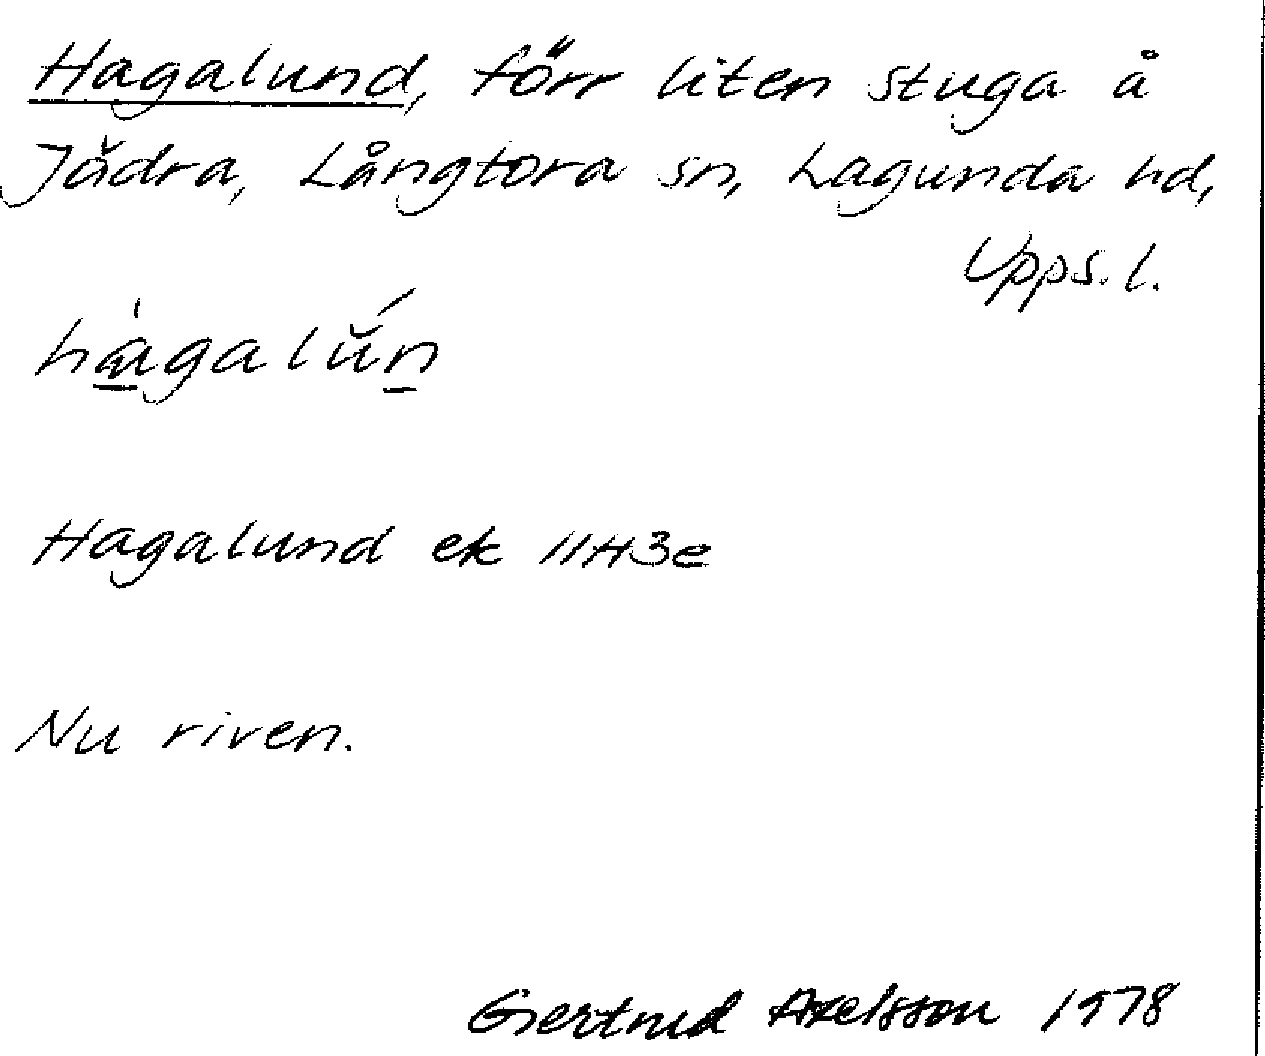 Hagalund, förr liten stuga å
Jädra, Långtora sn, Lagunda hd,
Upps. l.
hàgalún
Hagalund ek 11H3e
Nu riven.
Gertrud Axelsson 1978